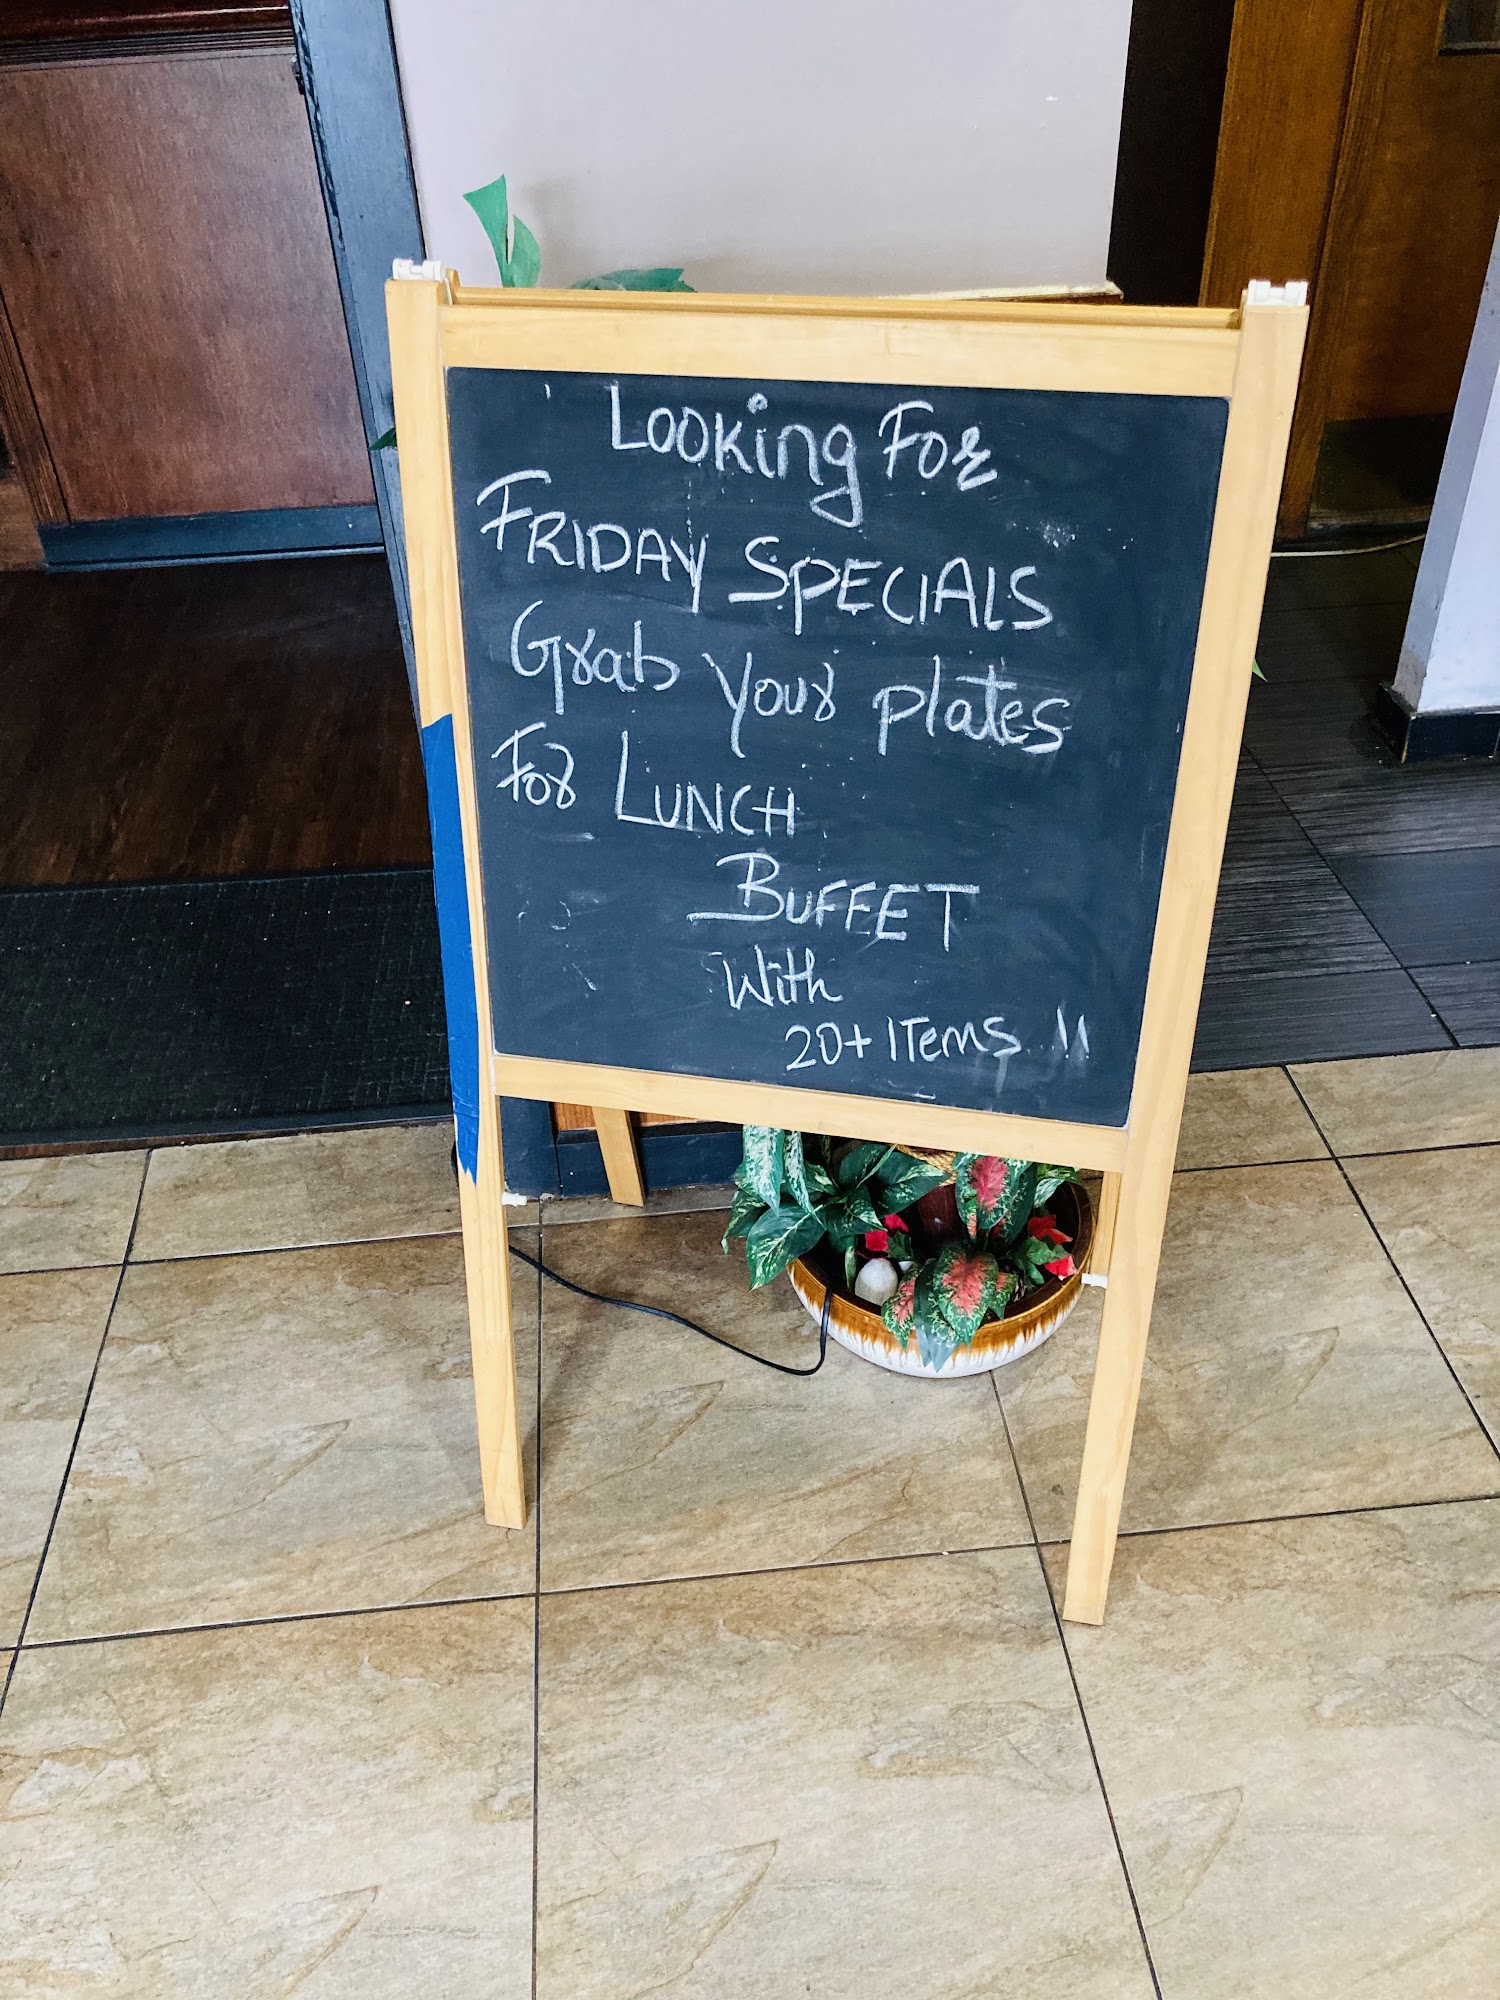 Looking For
FRIDAY SPECIALS
Grab Your plates
For LUNCH
BUFFET
With
20+ ITems !!